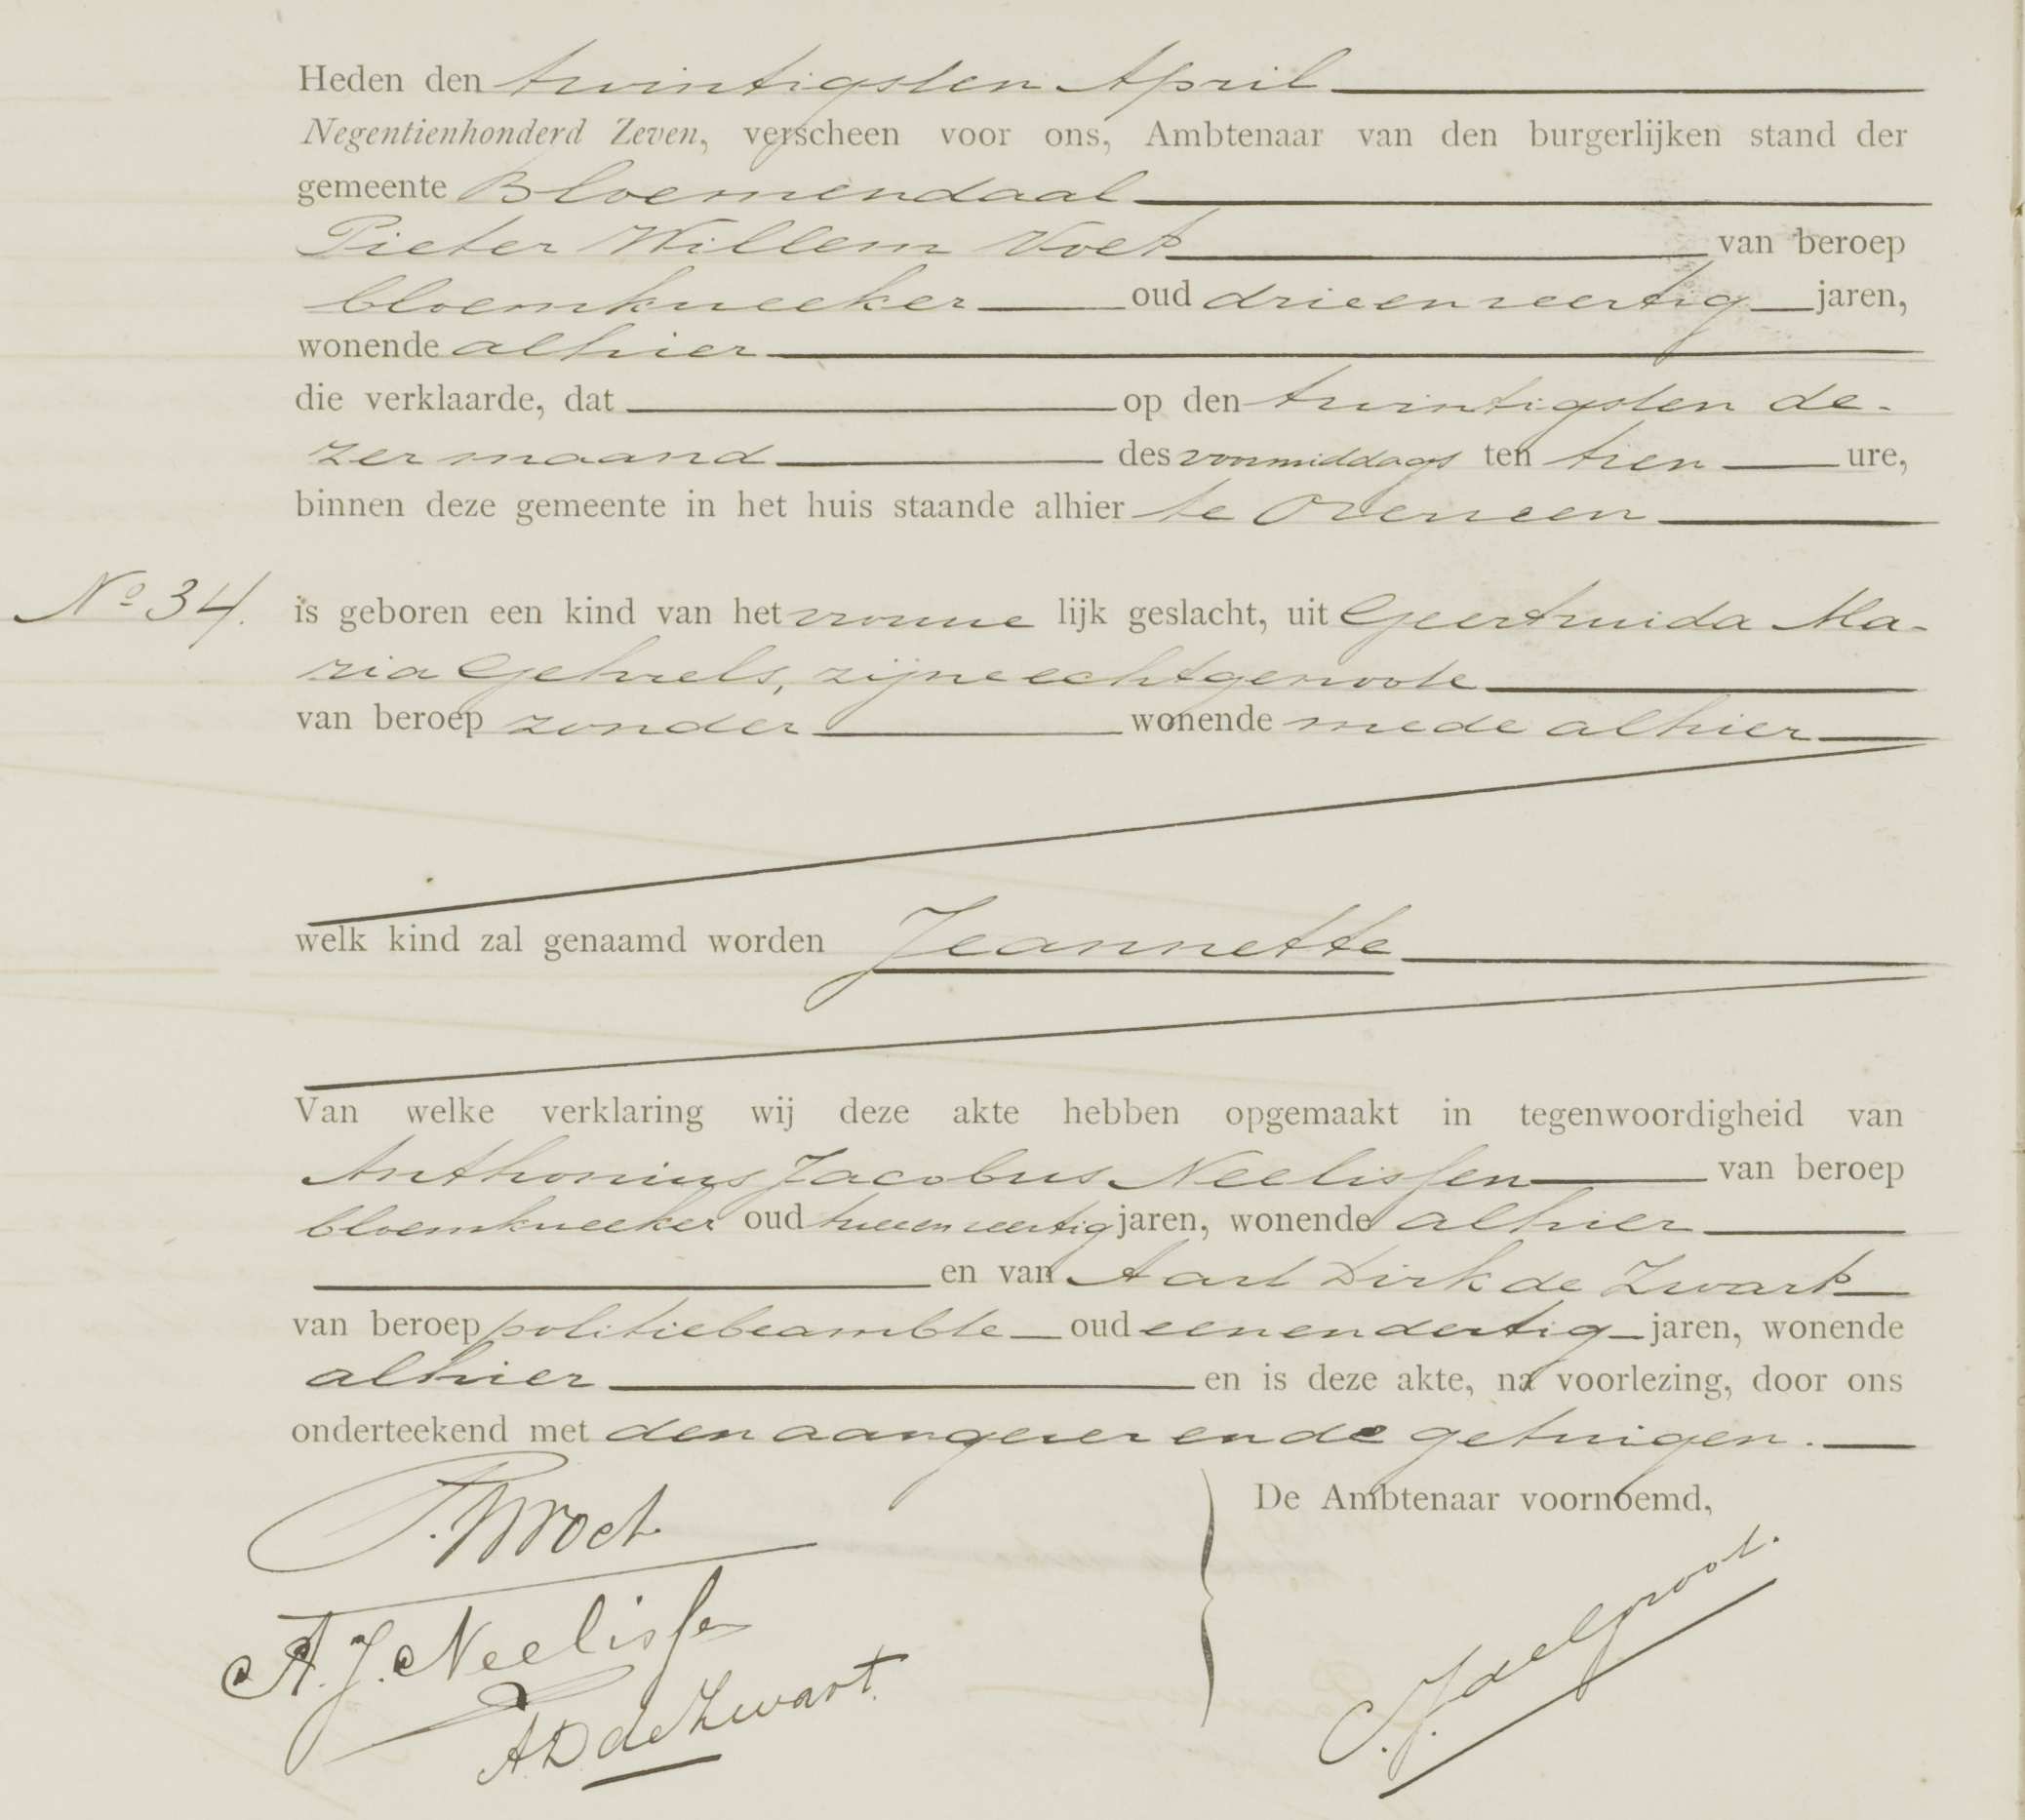 Heden den twintigsten April
Negentienhonderd Zeven, verscheen voor ons, Ambtenaar van den burgerlijken stand der
gemeente Bloemendaal
Pieter Willem Voet van beroep
bloemkweeker oud drieenveertig jaren,
wonende alhier
die verklaarde, dat op den twintigsten de-
zer maand des voormiddags ten tien ure,
binnen deze gemeente in het huis staande alhier te Overveen
No 34. is geboren een kind van het vrouwe lijk geslacht, uit Geertruida Ma-
ria Gehrels, zijne echtgenoote
van beroep zonder wonende mede alhier
welk kind zal genaamd worden Jeannette
Van welke verklaring wij deze akte hebben opgemaakt in tegenwoordigheid van
Anthonius Jacobus Neelissen van beroep
bloemkweeker oud tweeenveertig jaren, wonende alhier
en van Aart Dirk de Zwart
van beroep politiebeambte oud eenendertig jaren, wonende
alhier en is deze akte, na voorlezing, door ons
onderteekend met den aangever en de getuigen.
De Ambtenaar voornoemd,
P.W Voet
A.J. Neelissen
A.D. de Zwart.